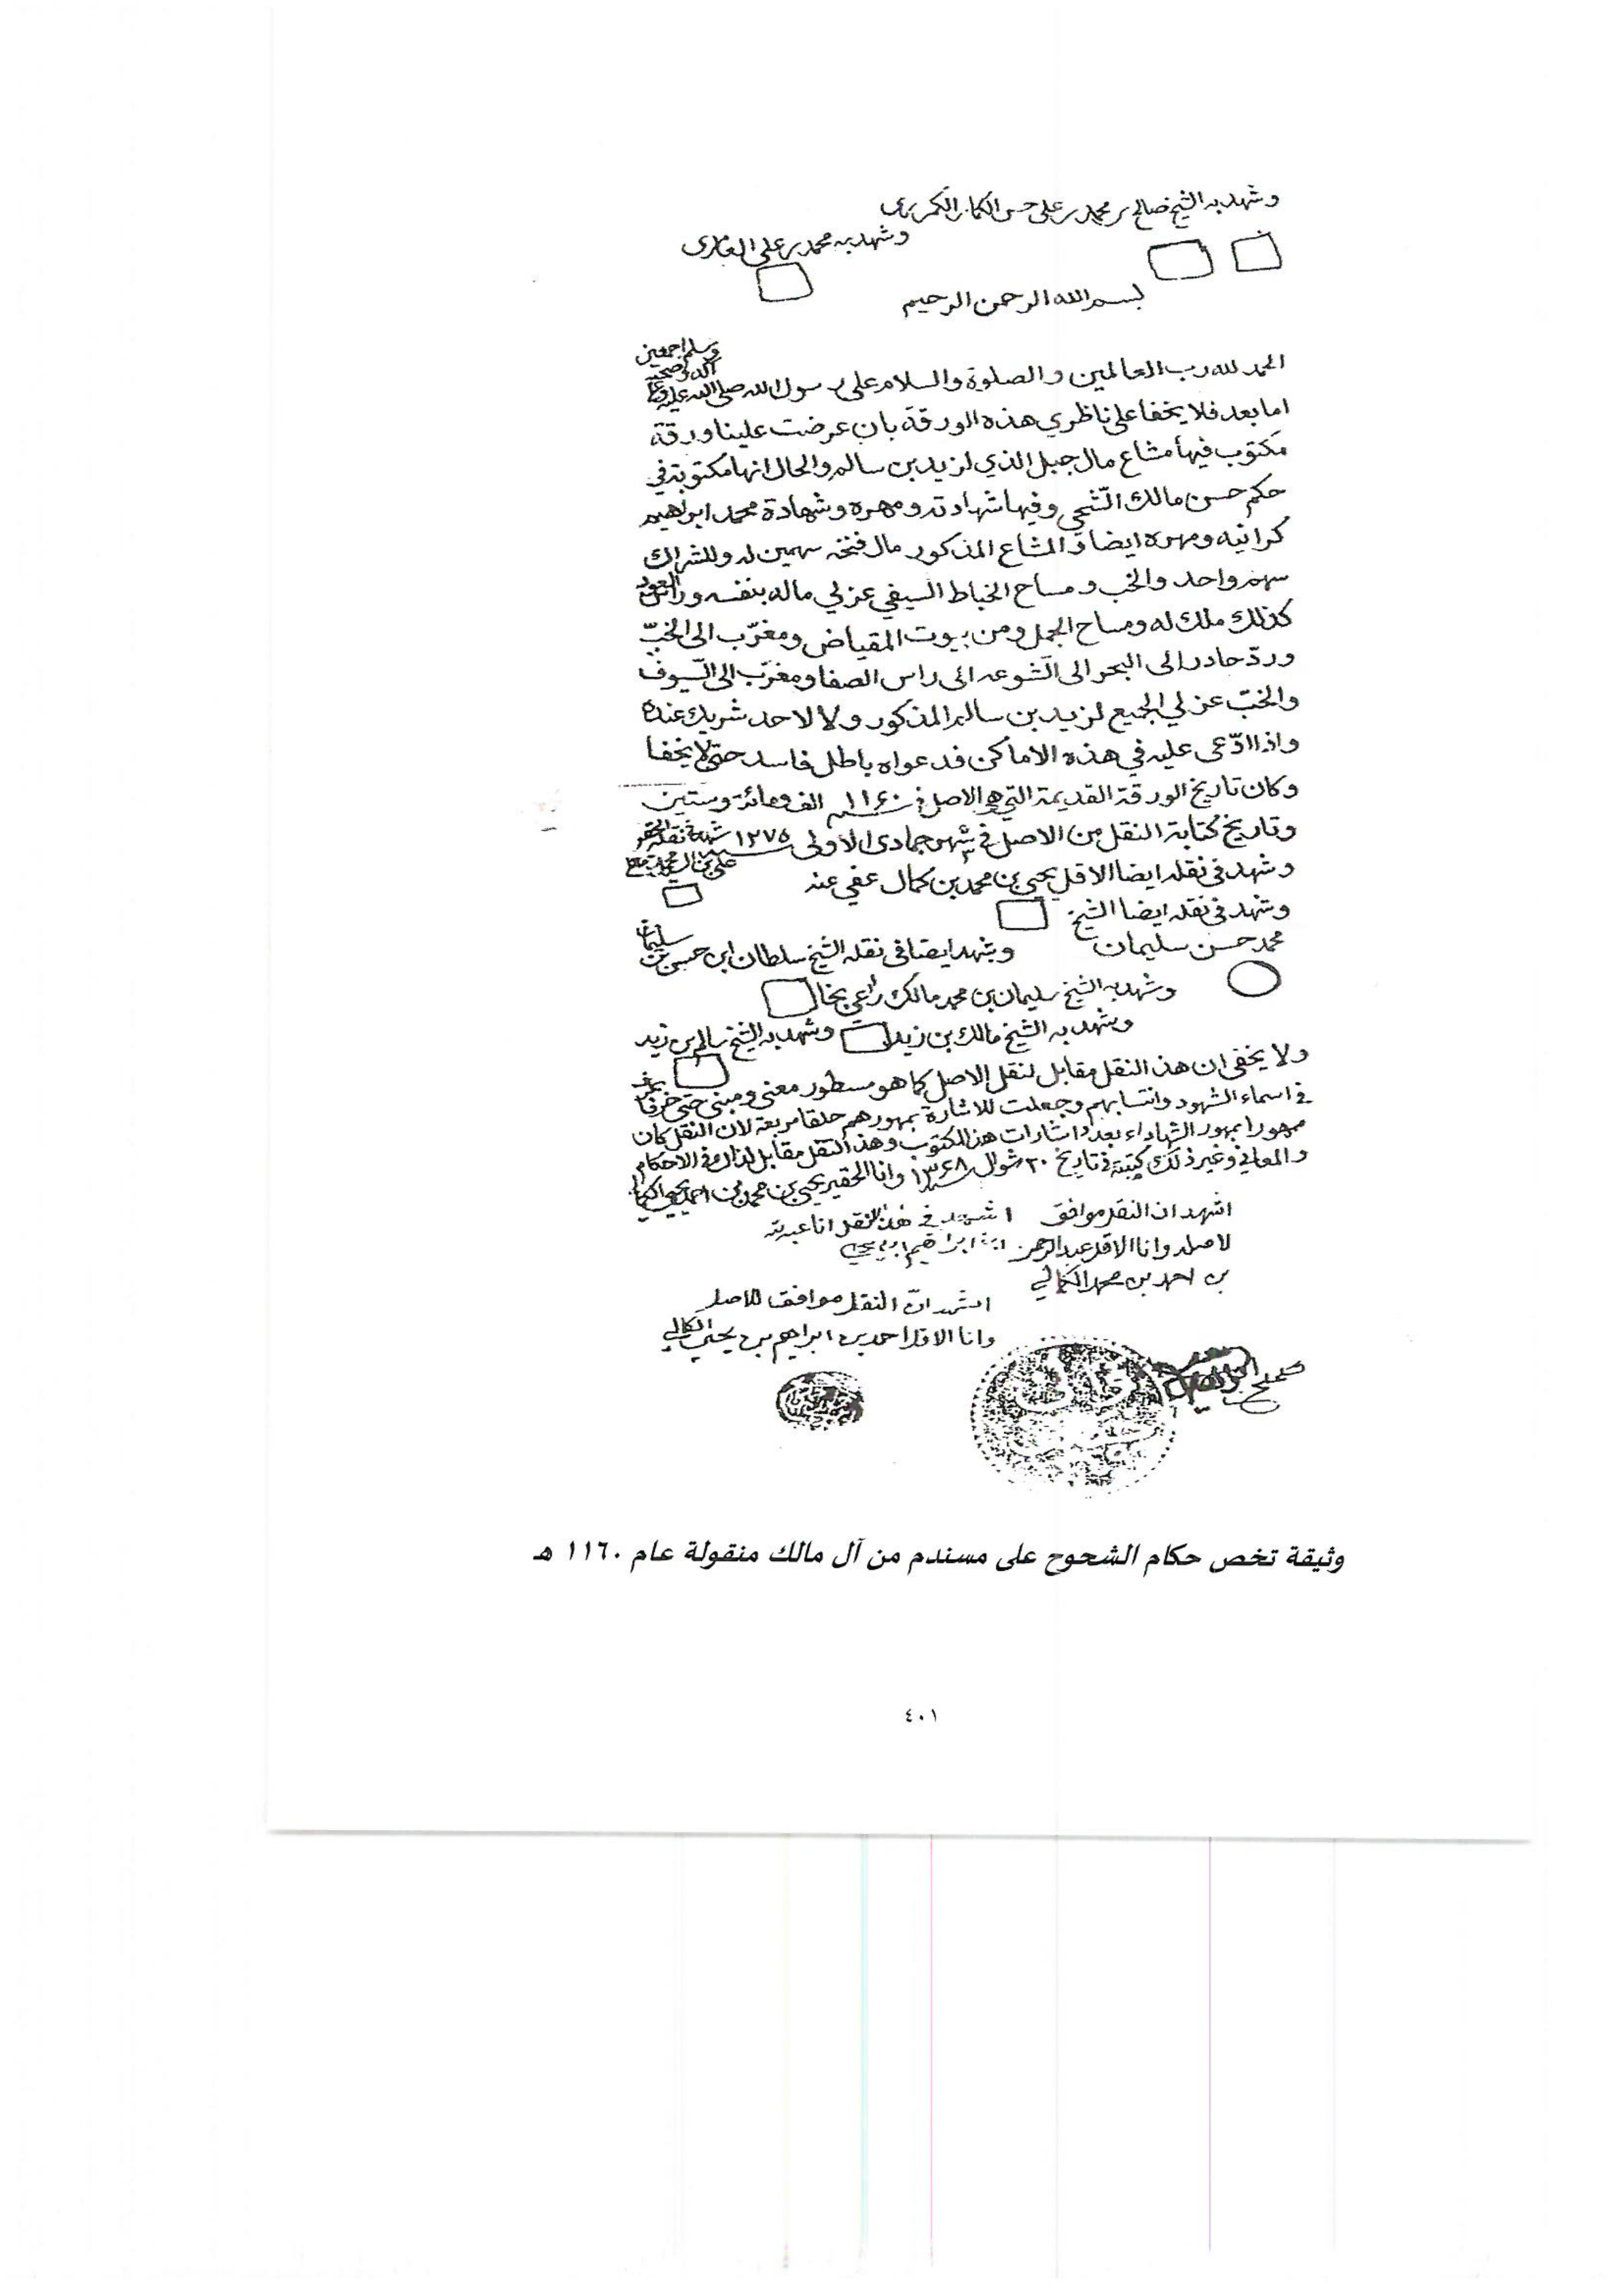 وشهد به الشيخ صالح بن محمد بن علي حسن
وشهد به محمد بن علي
بسم الله الرحمن الرحيم
الحمد لله رب العالمين والصلوة والسلام على رسول الله صلى الله عليه وعلى آله وصحبه وسلم اجمعين
اما بعد فلا يخفا على ناظري هذه الورقة بان عرضت علينا ورقة
مكتوب فيها مشاع مال جبل الذي لزيد بن سالم والحال انها مكتوبة في
حكم حسن مالك الشحي وفيها شهادته ومهره وشهادة محمد ابراهيم
كرانيه ومهره ايضا والمشاع المذكور مال فنخه سهمين له وللشراك
سهم واحد والخب ومساح الخباط السيفي عزلي ماله بنفسه وراس العود
كذلك ملك له ومساح الجمل ومن بيوت المقياض ومغرّب الى الخبّ
وردّ حادر الى البحر الى الشوعه الى راس الصفا ومغرّب الى السّيوف
والخبّ عزلي الجميع لزيد بن سالم المذكور ولا لاحد شريك عنده
واذا ادّعى عليه في هذه الاماكن فدعواه باطل فاسد حتى لا يخفا
وكان تاريخ الورقة القديمة التي هو الاصل في سنة ١١٦٠ الف ومائة وستين
وتاريخ كتابة النقل من الاصل في شهر جمادى الاولى سنة ١٢٧٥ شهد في نقله الحقير
علي بن
وشهد في نقله ايضا الاقل يحيى بن محمد بن كمال عفي عنه
وشهد في نقله ايضا الشيخ
محمد حسن سليمان
وشهد ايضا في نقله الشيخ سلطان ابن حسن بن سليمان
وشهد به الشيخ سليمان بن محمد مالك راعي بخا
وشهد به الشيخ مالك بن زيد
وشهد به الشيخ سالم بن زيد
ولا يخفى ان هذا النقل مقابل لنقل الاصل كما هو مسطور معنى ومبنى حتى حرفا بحرف
في اسماء الشهود وانتسابهم وجعلت للاشارة بمهورهم حلقا مربعة لان النقل كان
ممهورا بمهور الشهاداء بعدد اشارات هذا المكتوب وهذا النقل مقابل لذاك في الاحكام
والمعاني وغير ذلك كتبته في تاريخ ٢٠ شوال سنة ١٣٦٨ وانا الحقير يحيى بن محمد بن احمد يحيى الكمالي
اشهد ان النقل موافق
لاصله وانا الاقل عبد الرحمن
بن احمد بن محمد الكمالي
اشهد في هذا النقل انا عبد الله
ابن ابراهيم بن يحيى
اشهد انّ النقل موافق للاصل
وانا الاقل احمد بن ابراهيم بن يحيى الكمالي
وثيقة تخص حكام الشحوح على مسندم من آل مالك منقولة عام ١١٦٠ هـ
٤٠١